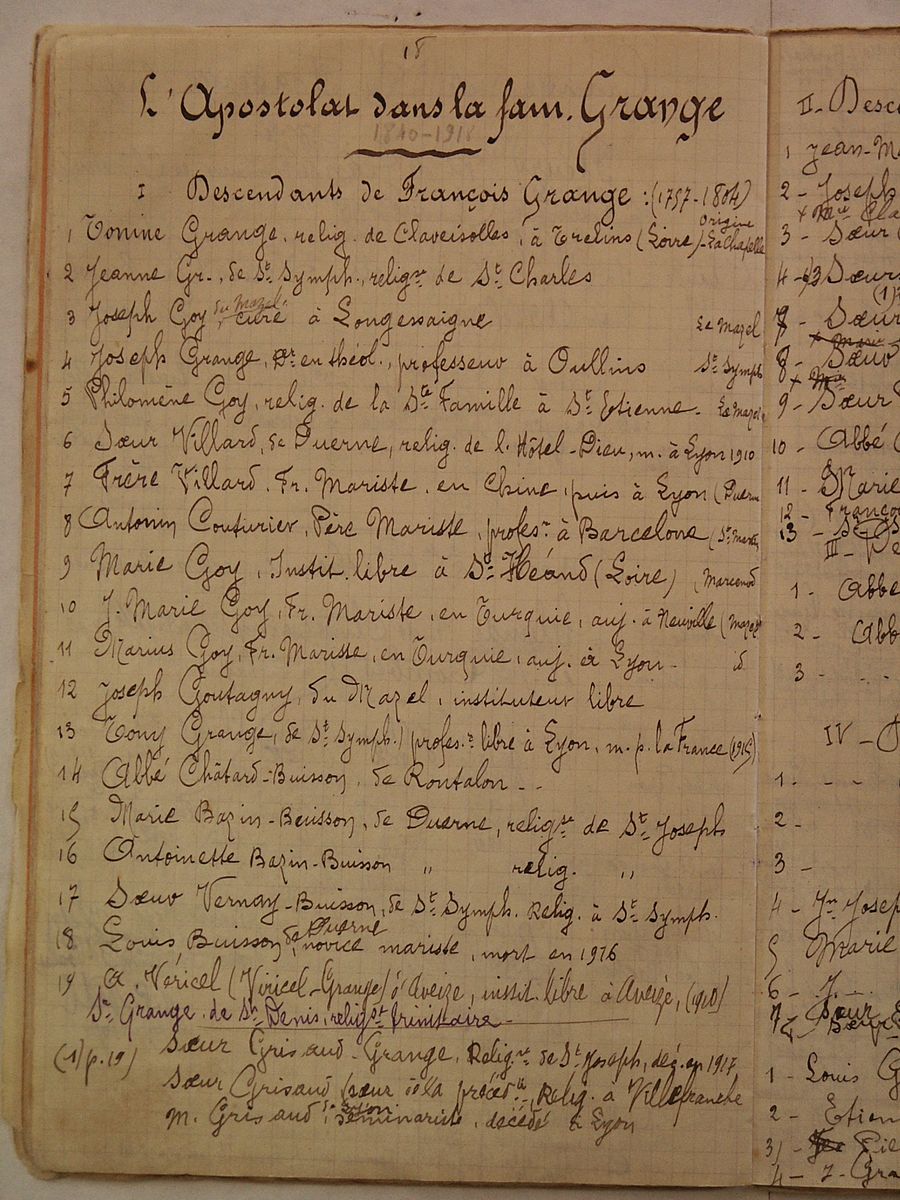 18
L'Apostolat dans la fam. Grange
1840-1918
I Descendants de François Grange : (1757-1804)
1 Tonine Grange, relig. de Claveisolles, à Trelins (Loire) - Origine La Chapelle
2 Jeanne Gr., de St Symph., religse de St Charles
3 Joseph Goy du Mazel, curé à Longessaigne Le Mazel
4 Joseph Grange, Dr en théol., professeur à Oullins St Symph
5 Philomène Goy, relig. de la Ste Famille à St Etienne - Le Mazel
6 Sœur Villard, de Duerne, relig. de l'Hôtel-Dieu, m. à Lyon 1910
7 Frère Villard, Fr. Mariste, en Chine, puis à Lyon (Duerne
8 Antonin Couturier, Père Mariste, profesr à Barcelone (St Mart
9 Marie Goy, Instit. libre à St Héand (Loire) (Marcenod
10 J. Marie Goy, Fr. Mariste, en Turquie, auj. à Neuville (Mazel
11 Marius Goy, Fr. Mariste, en Turquie, auj. à Lyon - id
12 Joseph Goutagny, du Mazel, instituteur libre
13 Tony Grange, de St Symph.) profes.r libre à Lyon, m. p. la France (1915)
14 Abbé Châtard-Buisson, de Rontalon - -
15 Marie Bazin-Buisson, de Duerne, religse de St Joseph
16 Antoinette Bazin-Buisson " relig. "
17 Sœur Vernay-Buisson, de St Symph. Relig. à St Symph.
18 Louis Buisson, de Duerne, novice mariste, mort en 1916
19 A. Véricel (Viricel-Grange) d'Aveize, instit. libre à Aveize, (1910)
Sr Grange de St Denis, religse trinitaire -
(1) p. 19) Sœur Grisaud-Grange, Religse de St Joseph, déc. en 1917
Sœur Grisaud, sœur de la précédte, Relig. à Villefranche
M. Grisaud, séminariste, décédé à Lyon
II - Desc
1 Jean-M
2 - Joseph
3 - Sœur
4 - Sœur
(1)
7 - Sœur
8 - Sœur
9 - Sœur
10 - Abbé
11 - Marie
12 - Franço
13 - St
III - De
1 - Abbé
2 - Abb
3 - . . .
IV -
1 - - -
2 -
3 -
4 - Jn Josep
5 Marie
6 - J. ...
7 - Sœur
1 - Louis G
2 - Etien
3) Pie
4 - J. Gra